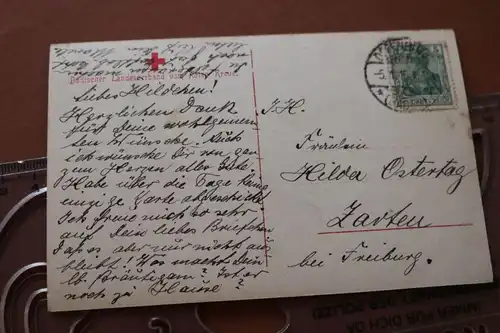 Badischer Landesverband vom Roten Kreuz.
Liebes Hildchen!
Herzlichen Dank
für Deine wohlgemein
ten Wünsche. Auch
ich wünsche Dir von gan
zem Herzen alles Gute.
Habe über die Tage keine
einzige Karte abgeschickt.
Ich freue mich so sehr
auf Dein liebes Briefchen
Daß es aber nur nicht aus
bleibt! Was macht Dein
lb. Bräutigam? Ist er
noch zu Hause?
I.H.
Fräulein
Hilda Ostertag
Zarten
bei Freiburg.